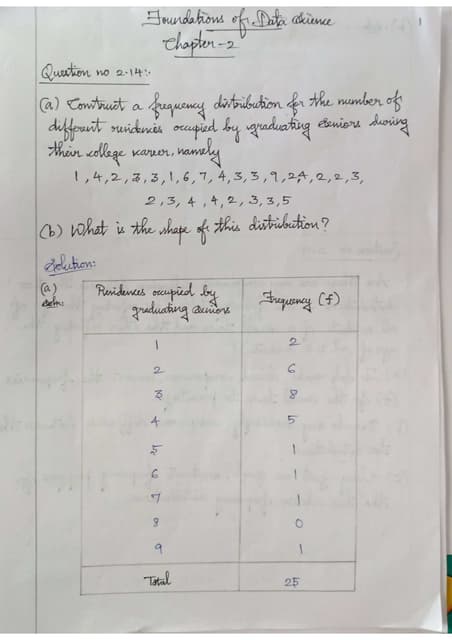 Foundations of Data Science
1
Chapter-2
Question no 2.14:
(a) Construct a frequency distribution for the number of
different residences occupied by graduating seniors during
their college career, namely
1, 4, 2, 3, 3, 1, 6, 7, 4, 3, 3, 9, 2, 4, 2, 2, 3,
2, 3, 4, 4, 2, 3, 3, 5
(b) What is the shape of this distribution?
Solution:
(a)
soln:
Residences occupied by
graduating seniors
Frequency (f)
1 2
2 6
3 8
4 5
5 1
6 1
7 1
8 0
9 1
Total 25